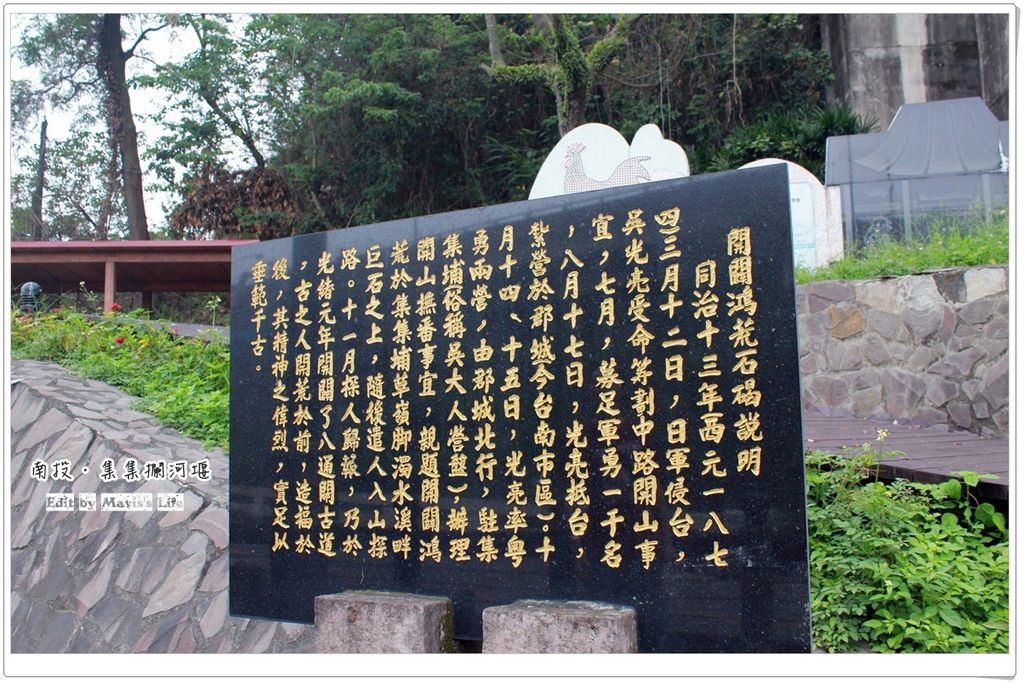 開闢鴻荒石碣說明
同治十三年西元一八七
四三月十二日，日軍侵台，
吳光亮受命籌劃中路開山事
宜，七月，募足軍勇一千名
，八月十七日，光亮抵台，
紮營於郡城今台南市區）。十
月十四、十五日，光亮率粵
勇兩營，由郡城北行，駐集
集埔俗稱吳大人營盤），辦理
開山撫番事宜，親題開闢鴻
荒於集集埔草嶺脚濁水溪畔
巨石之上，隨後遣人入山探
路。十一月探人歸報，乃於
光緒元年開闢了八通關古道
，古之人開荒於前，造福於
後，其精神之偉烈，實足以
垂範千古。
南投·集集攔河堰
Edit by Mavis's Life